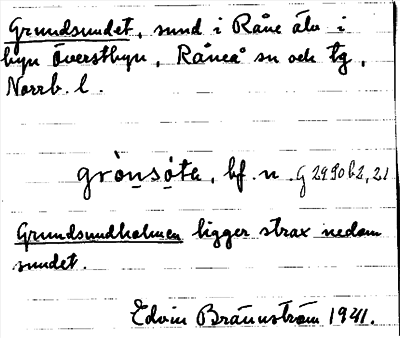 Grundsundet, sund i Råne älv i
byn Överstbyn, Råneå sn och tg,
Norrb. l.
gròn̲só̲te, bf. n. G 2990b2, 21
Grundsundholmen ligger strax nedom
sundet.
Edvin Brännström 1941.